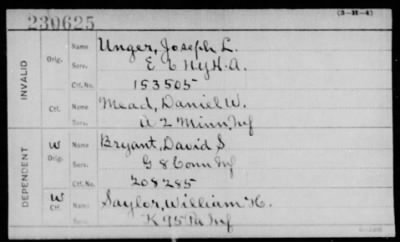 (3-H-4)
230625
INVALID
Orig. Name Unger, Joseph L.
Serv. E 2 Ny H.A.
Ctf. No. 153505
Ctf. Name Mead, Daniel W.
Serv. A 2 Minn Inf
DEPENDENT
W Orig. Name Bryant, David S
Serv. G 8 Conn Inf
Ctf. No. 208285
W Ctf. Name Saylor, William H.
Serv. K 95 Pa Inf